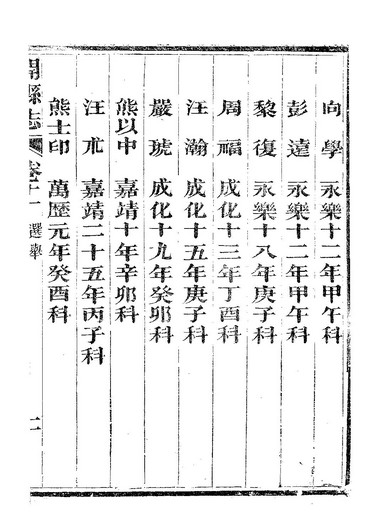 向學　永樂十二年甲午科
彭達　永樂十二年甲午科
黎復　永樂十八年庚子科
周福　成化十三年丁酉科
汪瀚　成化十五年庚子科
嚴琥　成化十九年癸卯科
熊以中　嘉靖十年辛卯科
汪朮　嘉靖二十五年丙子科
熊士印　萬歷元年癸酉科
開縣志　卷十一　選舉　二